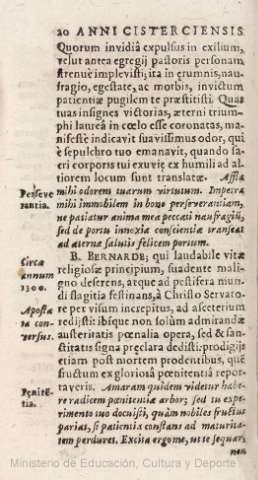 20 ANNI CISTERCIENSIS
Quorum invidiâ expulsus in exilium,
velut antea egregij pastoris personam
strenuè implevisti; ita in ęrumnis, nau-
fragio, egestate, ac morbis, invictum
patientiæ pugilem te præstitisti. Quas
tuas insignes victorias, æterni trium-
phi laureâ in cœlo esse coronatas, ma-
nifestè indicavit suavissimus odor, qui
è sepulchro tuo emanavit, quando sa-
cri corporis tui exuvię ex humili ad al-
tiorem locum sunt translatæ. Affla
Perseve
rantia.
mihi odorem tuarum virtutum. Impetra
mihi immobilem in bono perseverantiam,
ne patiatur anima mea peccati naufragiũ,
sed de portu innoxia conscientiæ transeat
ad æternæ salutis felicem portum.
Circa
annum
1300.
Aposta
ta con-
versus.
B. BERNARDE; qui laudabile vitæ
religiosæ principium, suadente mali-
gno deserens, atque ad pestifera mun-
di flagitia festinans, à Christo Servato-
re per visum increpitus, ad asceterium
redijsti: ibique non solùm admirandæ
austeritatis pœnalia opera, sed & san-
ctitatis signa præclara dedisti: prodigijs
etiam post mortem prodentibus, quę
fructum ex gloriosa pœnitentia repor-
taveris. Amaram quidem videtur habe-
Pœnitẽ-
tia.
re radicem pœnitentiæ arbor; sed tu expe-
rimento tuo docuisti, quàm nobiles fructus
pariat, si patientia constans ad maturita-
tem perduret. Excita ergo me, ut te sequar,
non
Ministerio de Educación, Cultura y Deporte